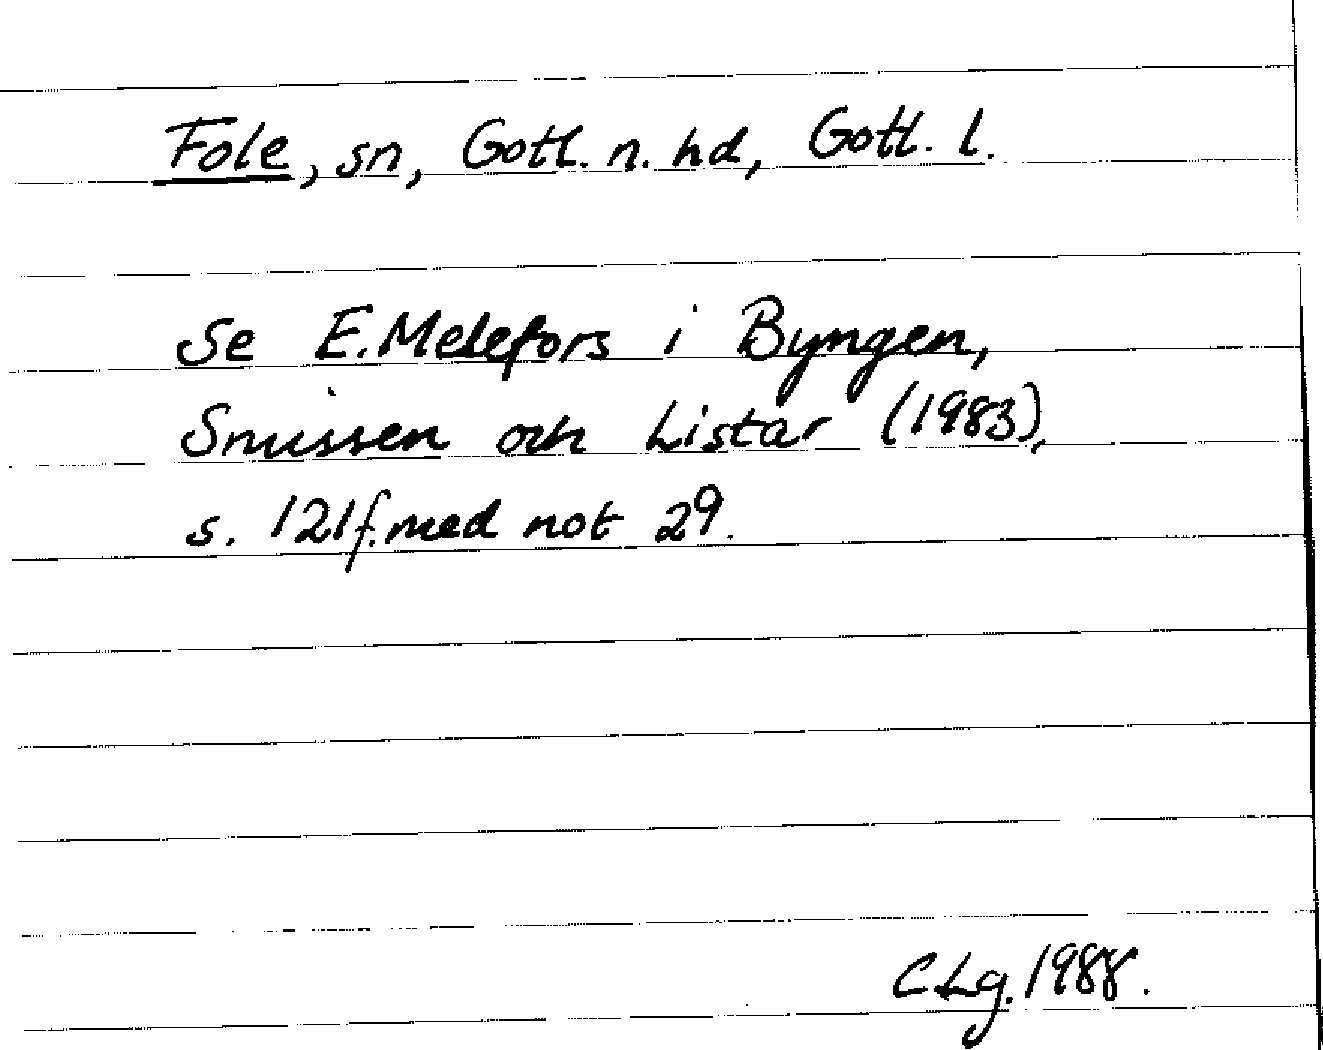 Fole, sn, Gotl. n. hd, Gotl. l.
Se E. Melefors i Byngen,
Snuissen och Listar (1983),
s. 121f. med not 29.
CLg. 1988.